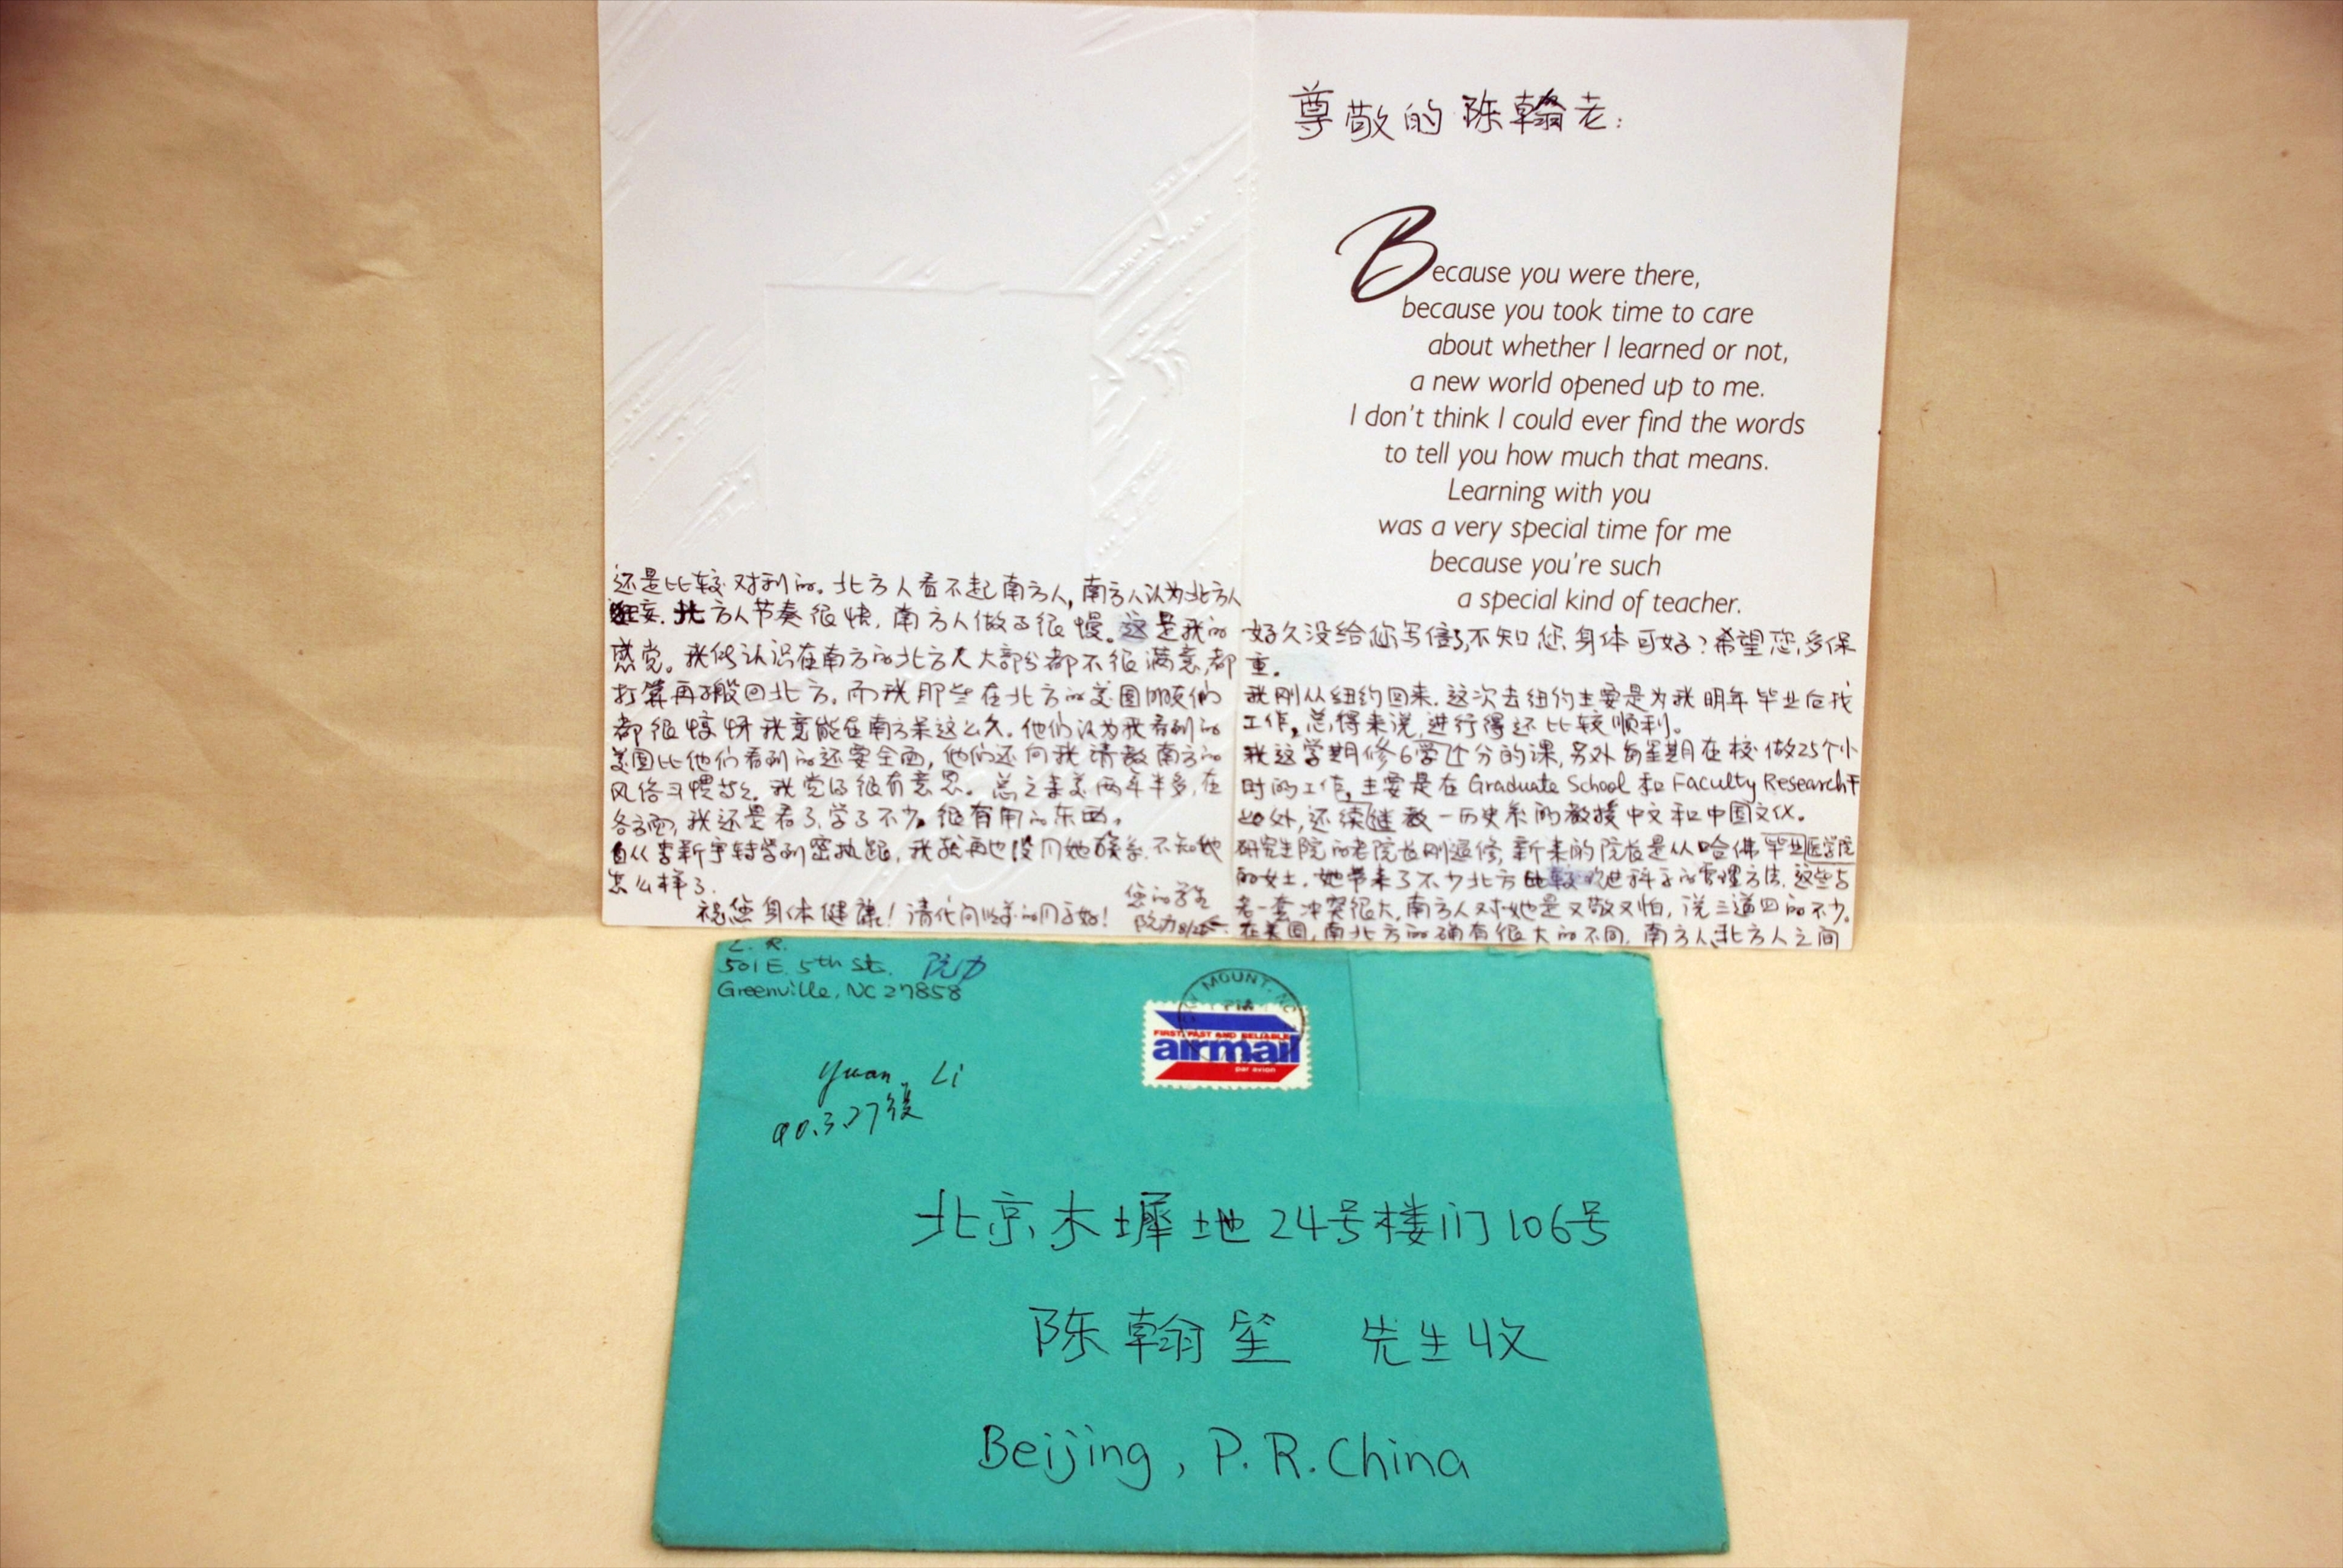 尊敬的陈翰老：
Because you were there,
because you took time to care
about whether I learned or not,
a new world opened up to me.
I don't think I could ever find the words
to tell you how much that means.
Learning with you
was a very special time for me
because you're such
a special kind of teacher.
好久没给您写信了,不知您身体可好?希望您多保
重。
我刚从纽约回来.这次去纽约主要是为我明年毕业后找
工作,总得来说,进行得还比较顺利。
我这学期修6学分的课,另外每星期在校做25个小
时的工作,主要是在Graduate School和Faculty Research干
此外,还继续教一历史系的教授中文和中国文化。
研究生院的老院长刚退休,新来的院长是从哈佛医学院毕业
的女士.她带来了不少北方比较科学的管理方法.这些与
老一套冲突很大,南方人对她是又敬又怕,说三道四的不少。
在美国,南北方的确有很大的不同.南方人、北方人之间
还是比较对利的。北方人看不起南方人,南方人认为北方人
狂妄.北方人节奏很快,南方人做事很慢。这是我的
感觉。我所认识在南方的北方人大部分都不很满意,都
打算再搬回北方。而我那些在北方的美国朋友们
都很惊讶我竟能在南方呆这么久。他们认为我看到的
美国比他们看到的还要全面,他们还向我请教南方的
风俗习惯等等。我觉得很有意思。总之来美两年半多,在
各方面,我还是看了、学了不少很有用的东西。
自从李新宇转学到密执安,我就再也没同她联系.不知她
怎么样了.
祝您身体健康!请代问史美的同事好!
您的学生
阮力 8/25
L. R.
501 E. 5th St. 阮力
Greenville, NC 27858
MOUNT, NC
FIRST, FAST AND RELIABLE
airmail
par avion
Yuan Li
90.3.27復
北京木墀地24号楼门106号
陈翰笙 先生收
Beijing, P.R.China